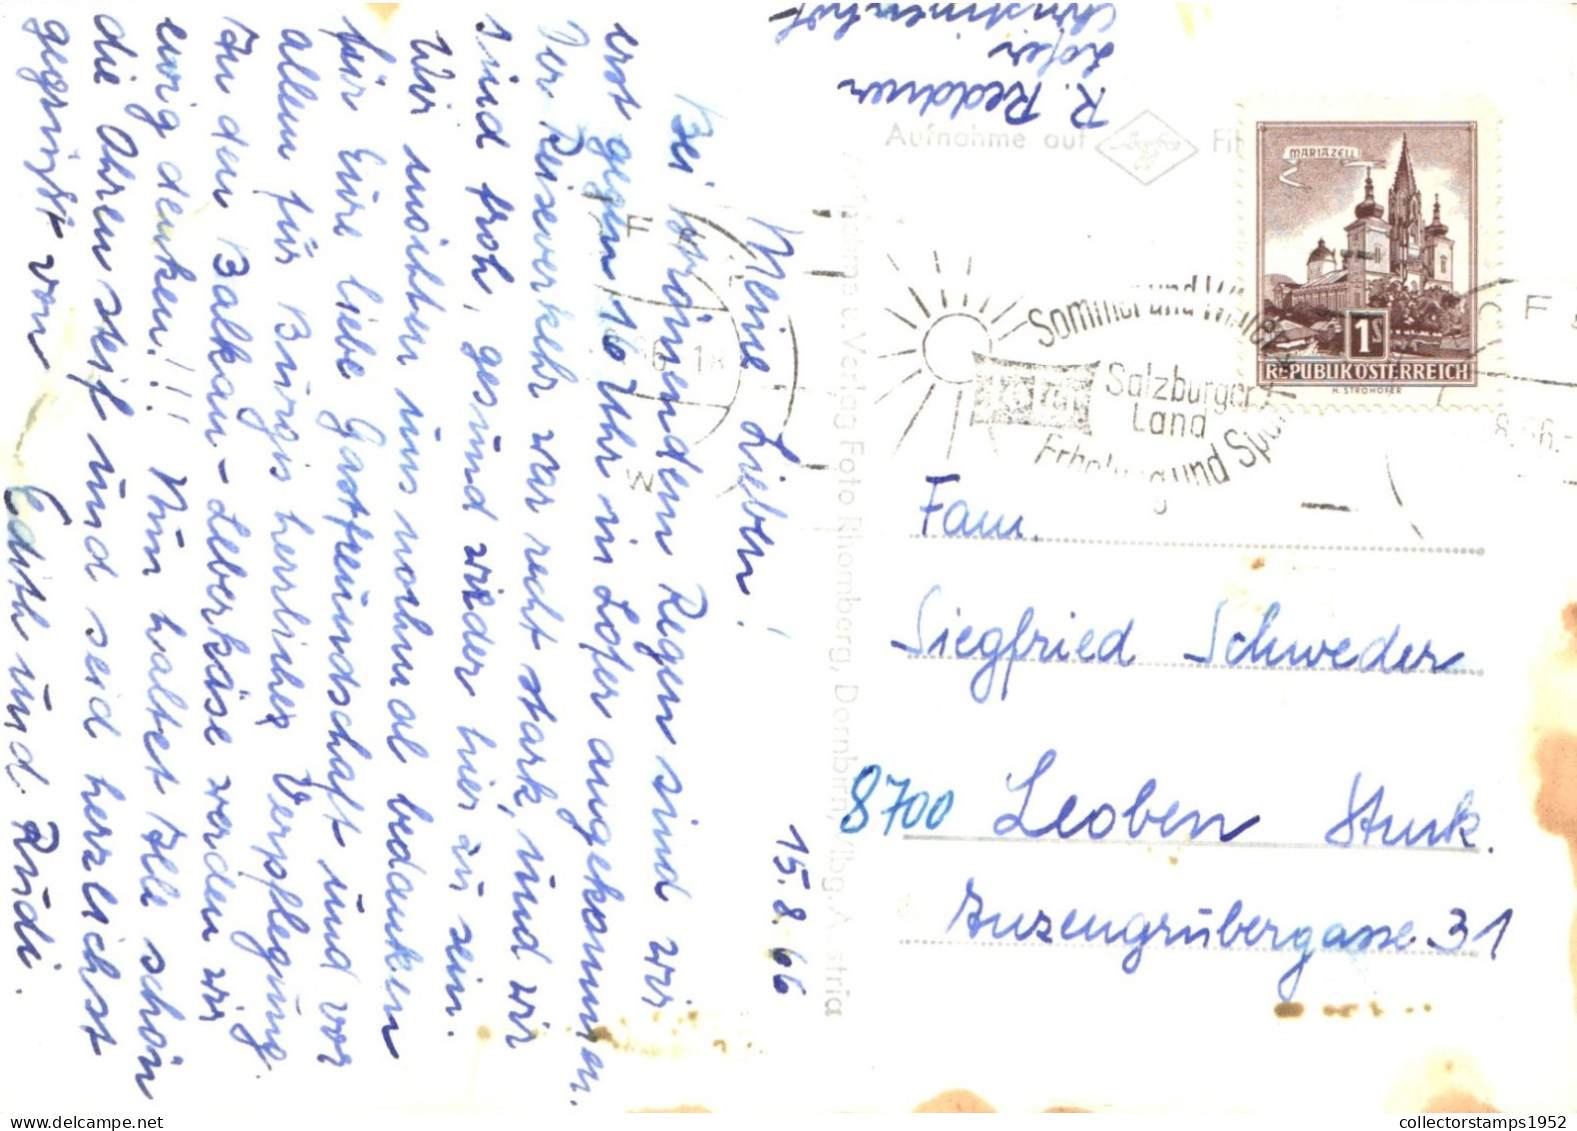 R. Reddner
Lofer
15.8.66
Meine Lieben!
Bei strömendem Regen sind wir
erst gegen 16 Uhr in Lofer angekommen.
Der Reiseverkehr war recht stark, und wir
sind froh, gesund wieder hier zu sein.
Wir möchten uns nochmal bedanken
für Eure liebe Gastfreundschaft und vor
allem für Burgis herrliche Verpflegung.
An den Balkan-Leberkäse werden wir
ewig denken!!! Nun haltet Alle schön
die Ohren steif und seid herzlichst
gegrüßt von
Edith und Rudi.
Aufnahme auf
u. Verlag Foto Rhomberg, Dornbirn, Vlbg. Austria
MARIAZELL
1S
REPUBLIK ÖSTERREICH
H. STROHOFER
Sommer und Winter
Salzburger
Land
Erholung und Sport
Fam.
Siegfried Schweder
8700 Leoben Stmk.
Anzengrubergasse 31
collectorstamps1952